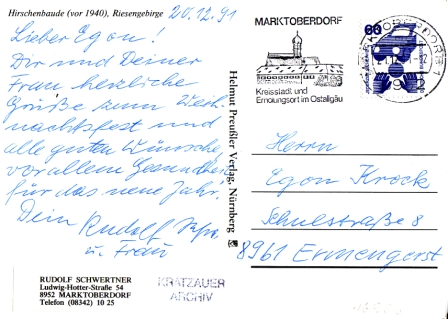 Hirschenbaude (vor 1940), Riesengebirge
20.12.91
Lieber Egon!
Dir und Deiner
Frau herzliche
Grüße zum Weih-
nachtsfest und
alle guten Wünsche,
vor allem Gesundheit
für das neue Jahr.
Dein Rudolf
u. Frau
RUDOLF SCHWERTNER
Ludwig-Hotter-Straße 54
8952 MARKTOBERDORF
Telefon (08342) 10 25
KRATZAUER
ARCHIV
Helmut Preußler Verlag, Nürnberg
MARKTOBERDORF
Kreisstadt und
Erholungsort im Ostallgäu
60
Herrn
Egon Kreck
Schulstraße 8
8961 Ermengerst